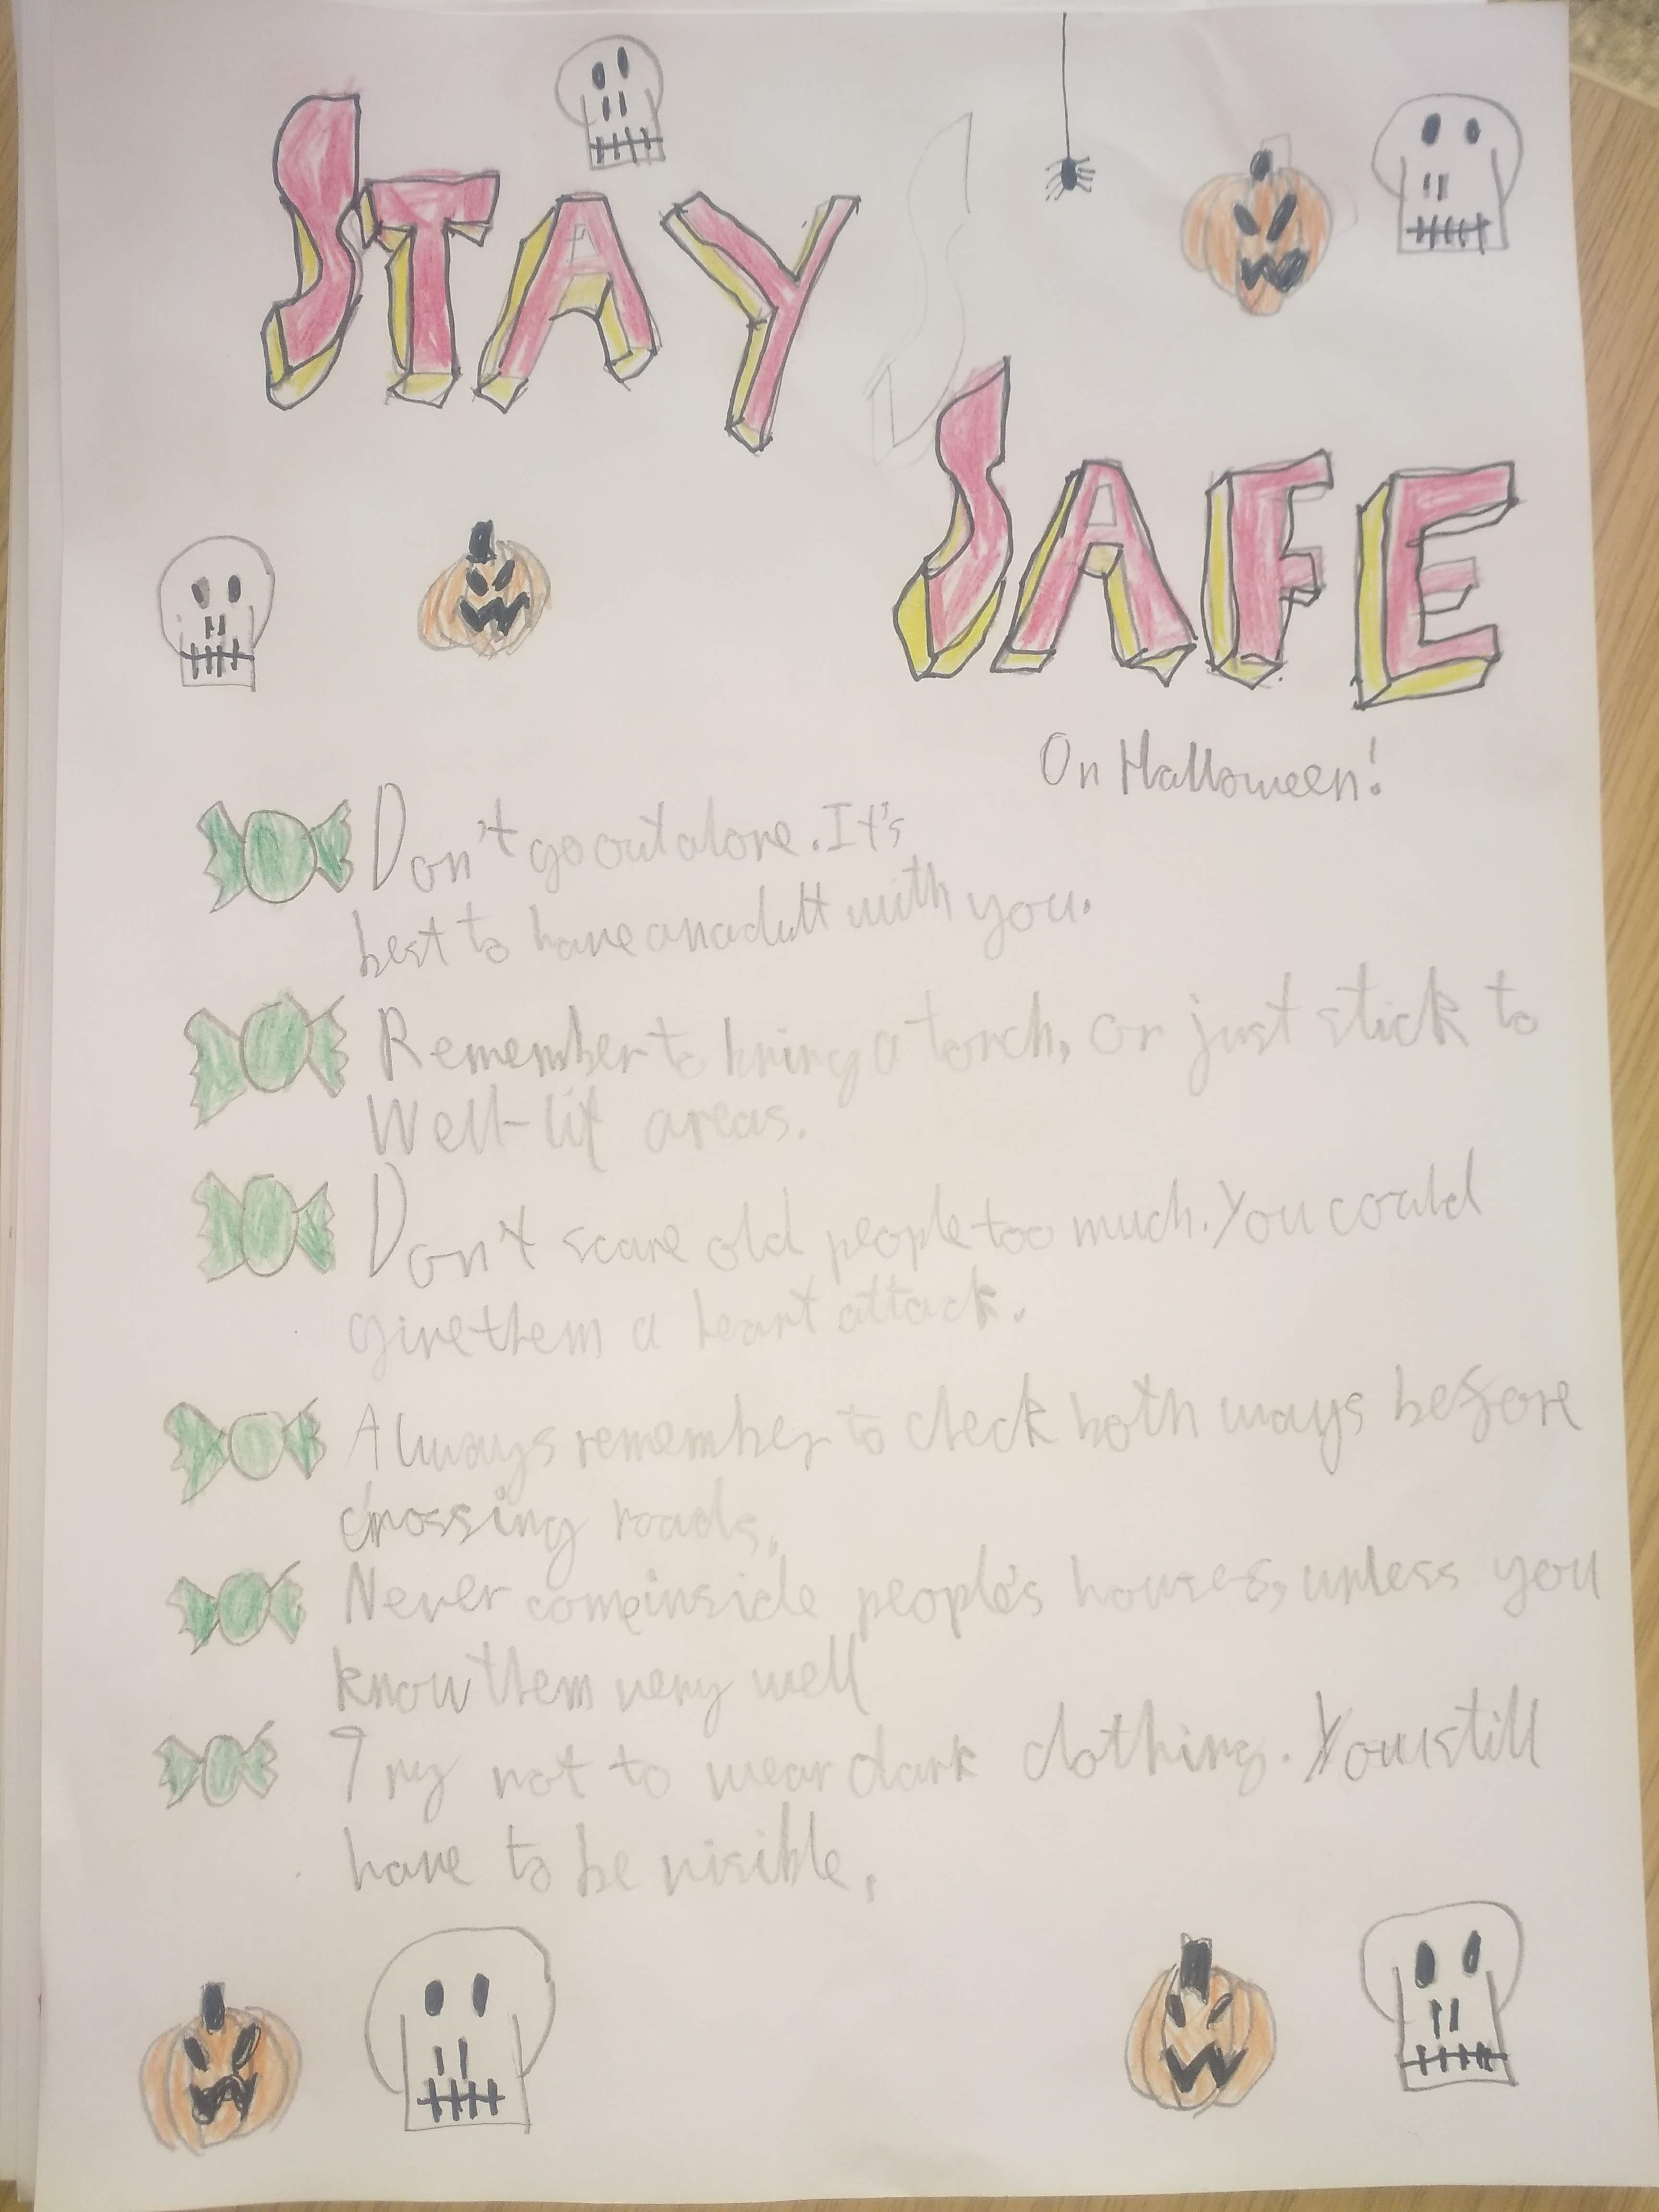 STAY
SAFE
On Halloween!
Don't go out alone. It's
best to have an adult with you.
Remember to bring a torch, or just stick to
Well-lit areas.
Don't scare old people too much. You could
give them a heart attack.
Always remember to check both ways before
crossing roads.
Never come inside people's houses, unless you
know them very well
Try not to wear dark clothing. You still
have to be visible.